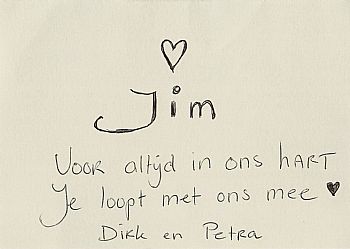 Jim
Voor altijd in ons hart
Je loopt met ons mee ♥
Dirk en Petra